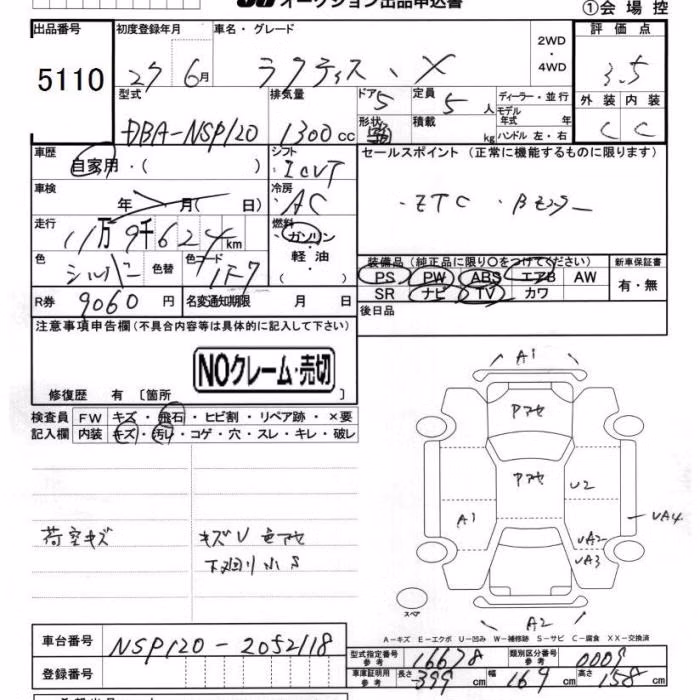 オークション出品申込書
①会場控
出品番号 初度登録年月 車名・グレード 2WD・4WD 評価点
5110 27 6月 ラクティス、X 3.5
型式 排気量 ドア 5 定員 5人 ディーラー・並行 外装 内装
DBA-NSP120 1300cc 形状 積載 kg モデル年式 年 ハンドル 左・右 C C
車歴 自家用・( ) シフト ICVT セールスポイント (正常に機能するものに限ります)
車検 年 月( 日) 冷房 AC ・ETC ・Bモニター
走行 11万9千624km 燃料 ・ガソリン・軽油( )
色 シルバー 色替 色コード 1F7 装備品 (純正品に限り○をつけてください) 新車保証書
PS PW ABS エアB AW 有・無
R券 9060円 名変通知期限 月 日 SR ナビ TV カワ
注意事項申告欄(不具合内容等は具体的に記入して下さい) 後日品
NOクレーム・売切
修復歴 有 〔箇所 〕
検査員 FW キズ・飛石・ヒビ割・リペア跡・×要
記入欄 内装 キズ・汚レ・コゲ・穴・スレ・キレ・破レ
A1
Pアセ
Pアセ
U2
A1 UA4
UA2
UA3
荷室キズ キズU 色アセ
下廻り小S
スペア
A2
A-キズ E-エクボ U-凹み W-補修跡 S-サビ C-腐食 XX-交換済
車台番号 NSP120-2052118
型式指定番号 参考 16678 類別区分番号 参考 0009
登録番号 車庫証明用 参考 長さ 399 cm 幅 169 cm 高さ 158 cm